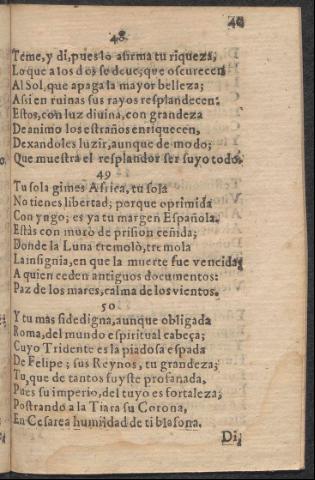 40
48
Teme, y di, pues lo afirma tu riqueza;
Lo que a los dos se deue, que oscurecen
Al Sol, que apaga la mayor belleza;
Assi en ruinas sus rayos resplandecen:
Estos, con luz diuina, con grandeza
De animo los estraños enriquecen,
Dexandoles luzir, aunque de modo;
Que muestra el resplandor ser suyo todo.
49
Tu sola gimes Africa, tu sola
No tienes libertad; porque oprimida
Con yugo; es ya tu margen Española.
Estàs con muro de prision ceñida;
Donde la Luna tremolò, tremola
La insignia, en que la muerte fue vencida;
A quien ceden antiguos documentos:
Paz de los mares, calma de los vientos.
50
Y tu mas fidedigna, aunque obligada
Roma, del mundo espiritual cabeça;
Cuyo Tridente es la piadosa espada
De Felipe; sus Reynos, tu grandeza;
Tu, que de tantos fuyste profanada,
Pues su imperio, del tuyo es fortaleza;
Postrando a la Tiara su Corona,
En Cesarea humildad de ti blasona.
Di,